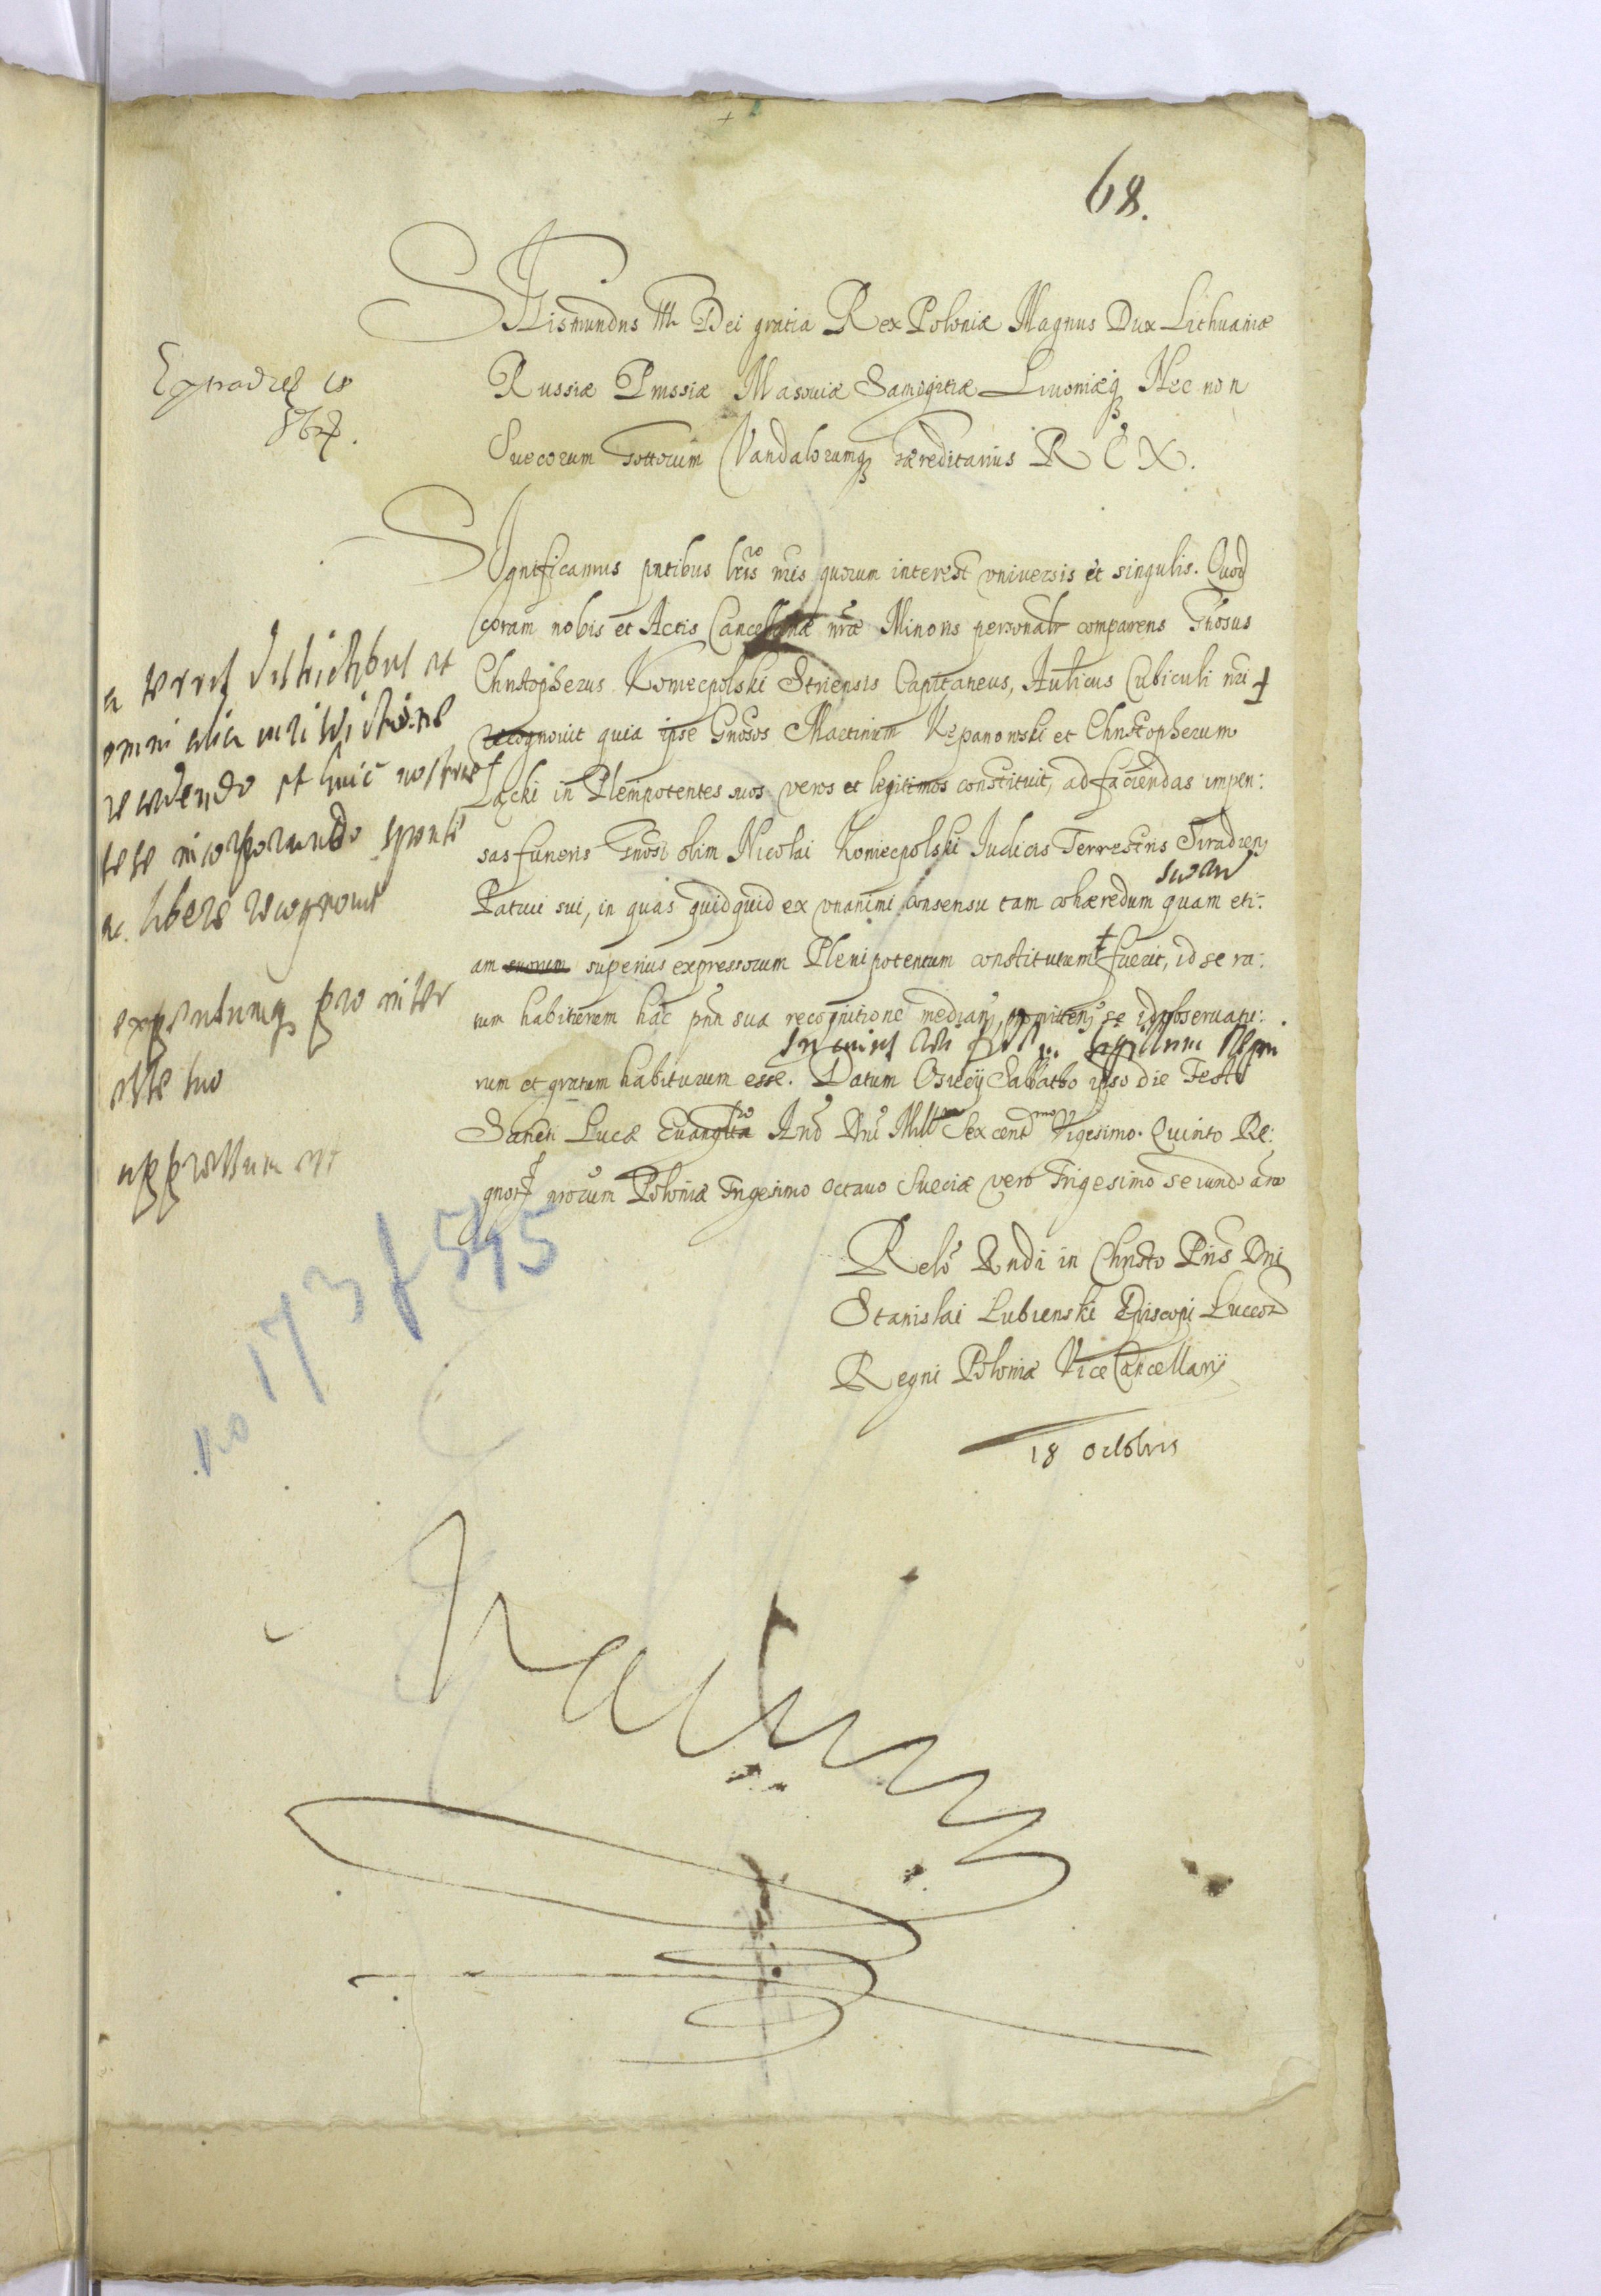 68.
SIgismundus III Dei gratia Rex Poloniæ Magnus Dux Lithuaniæ
Russiæ Prussiæ Masouiæ Samogitiæ Liuoniæq Nec non
Suecorum Gottorum Vandalorumq hæreditarius REX.
SIgnificamus pntibus lris nris quorum interest vniuersis et singulis. Quod
coram nobis et Actis Cancellariæ nræ Minoris personalr comparens Gnosus
Christopherus Koniecpolski Striensis Capitaneus, Aulicus Cubiculi nri +
recognouit quia ipse Gnosos Martinum Rzpanowski et Christopherum
Lacki in Plenipotentes suos veros et legitimos constituit, ad faciendas impen:
sas funeris Gnosi olim Nicolai Koniecpolski Iudicis Terrestris Siradien
Patrui sui, in quas quidquid ex vnanimi consensu tam cohæredum suorum quam eti:
am suorum superius expressorum Plenipotentum constitutum + fuerit, id se ra:
tum habiturum hac pnti sua recognitione median, se id obseruatu:
In cuius rei fidem Sigillum Regni
rum et gratum habiturum esse. Datum Osiecÿ Sabbatho ipso die Festi
Sancti Lucæ Euanglia Ano Dni Mill Sexcent mo Vigesimo Quinto Re:
gnor nrorum Poloniæ Trigesimo octauo Sueciæ vero Trigesimo secundo ano
Relo Rndi in Christo Pris Dni
Stanislai Lubienski Episcopi Luceor
Regni Poloniæ Vice Cancellarÿ
18 octobris
a terris districtibus et
omni alia iurisdictione
recedendo et huic nostræ
sese incorporando sponte
ac libere recognouit
expensumq pro
approbatum
no 173 f 545